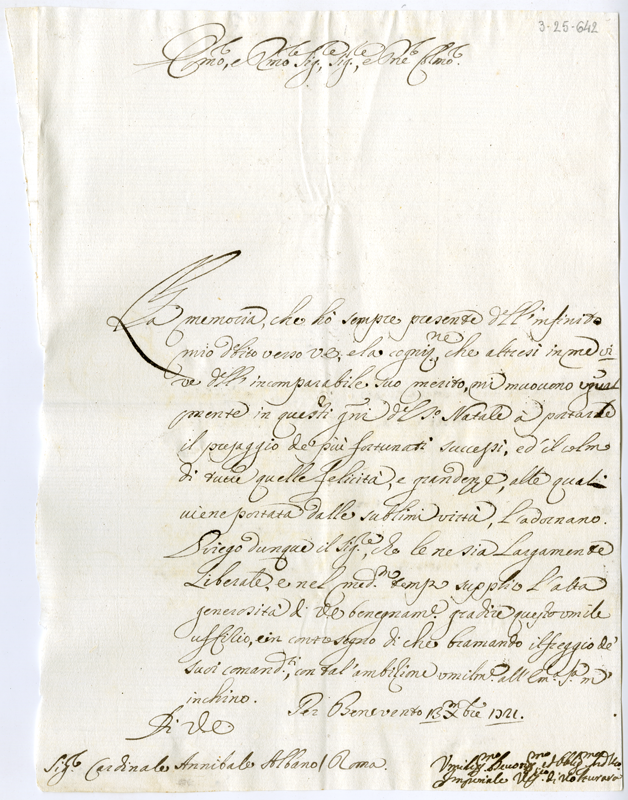 3-25-642
Em.o, e Rmo Sig.re, Sig.re, e Pne Colmo.
La memoria, che hò sempre presente dell'infinito
mio debito verso VE, e la cogniz.ne, che altresi in me vi
ve dell' incomparabile suo merito, mi muovono ugual
mente in questi gni del S.o Natale à portarle
il presaggio de più fortunati successi, ed il colmo
di tutte quelle felicità, e grandezze, alle quali
viene portata dalle sublimi virtù, che l'adornano.
Priego dunque il Sig.re, che le ne sia largamente
liberale, e nel med.mo tempo supplico l'alta
generosità di VE benegnam.e gradire questo umile
uffitio, e in contrasegno di che bramando il freggio de'
suoi comandi, con tal'ambitione umilm.e all' Em.a S.a m'
inchino. Per Benevento 13 Xbre 1721.
Di VE
Sig.r Cardinale Annibale Albano / Roma.
Umiliss.mo Devotiss.mo Obblig.mo
Imperiale